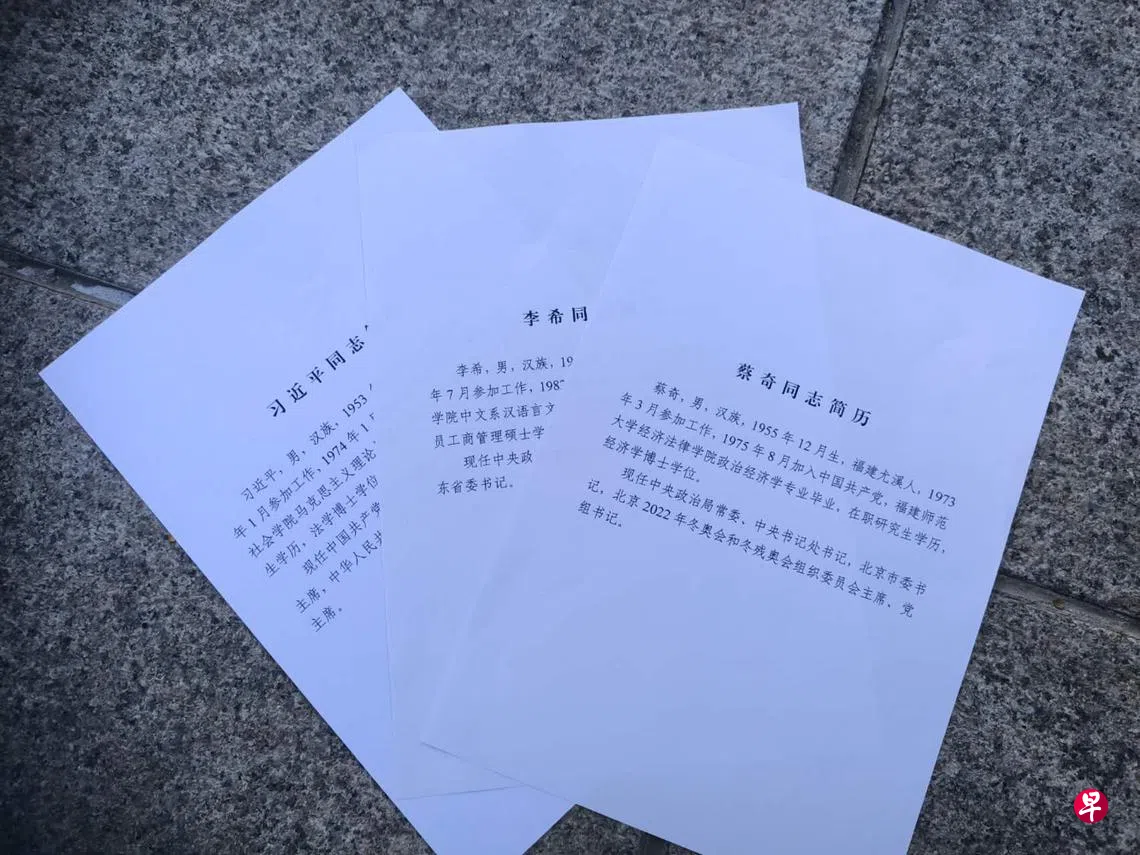 习近平同志
习近平，男，汉族，1953
年1月参加工作，1974年1
社会学院马克思主义理论
生学历，法学博士学位
现任中国共产党
主席，中华人民共
主席。
李希同
李希，男，汉族，19
年7月参加工作，198
学院中文系汉语言文
员工商管理硕士学
现任中央政
东省委书记。
蔡奇同志简历
蔡奇，男，汉族，1955年12月生，福建尤溪人，1973
年3月参加工作，1975年8月加入中国共产党，福建师范
大学经济法律学院政治经济学专业毕业，在职研究生学历，
经济学博士学位。
现任中央政治局常委、中央书记处书记，北京市委书
记，北京2022年冬奥会和冬残奥会组织委员会主席、党
组书记。
早